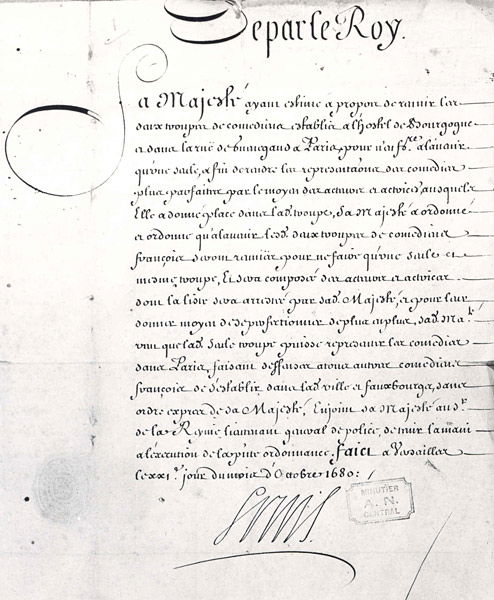 De par le Roy.
Sa Majesté ayant estimé a propos de reünir les
deux trouppes de comediens establis a l'hostel de Bourgogne
et dans la rüe de Guenegaud a Paris, pour n'en fre. alavenir
qu'une seule, afin de rendre les representaōns des comedies
plus parfaittes par le moyen des acteurs et actrices ausquels
Elle a donné place dans lad. troupe, Sa Majesté a ordonné
et ordonne qu'alavenir lesd. deux trouppes de comediens
françois seront reünies pour ne faire qu'une seule et
mesme troupe, Et sera composée des acteurs et actrices
dont la liste sera arrestée par sad. Majesté, et pour leur
donner moyen de se perfectionner de plus en plus, sad. Maté.
veut que lad. seule troupe puisse representer les comedies
dans Paris, faisant deffenses a tous autres comediens
françois de s'establir dans lad. ville et fauxbourgs, sans
ordre exprez de sa Majesté, Enjoint sa Majesté au Sr.
de la Reynie lieutenant general de police, de tenir la main
a l'execution de la pnte ordonnance. Faict a Versailles
le xxie. jour du mois d'Octobre 1680:
Louis
MINUTIER
A. N.
CENTRAL